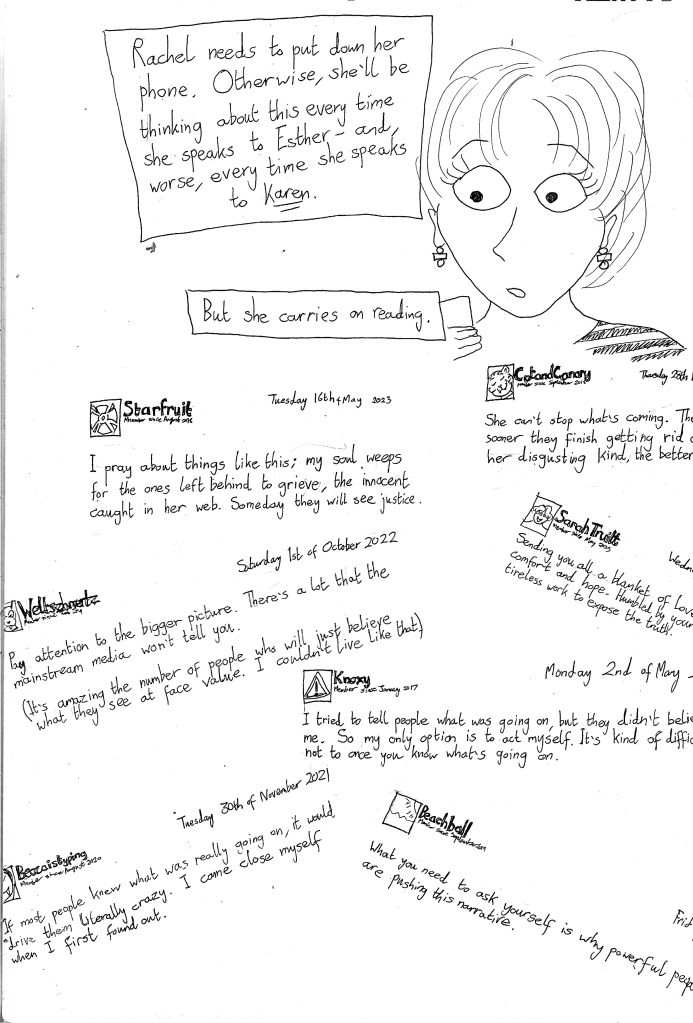 Rachel needs to put down her
phone. Otherwise, she'll be
thinking about this every time
she speaks to Esther – and,
worse, every time she speaks
to Karen.
But she carries on reading.
Starfruit
Member since August
Tuesday 16th of May 2023
I pray about things like this; my soul weeps
for the ones left behind to grieve, the innocent
caught in her web. Someday they will see justice.
CatandCanary
Member since September
Thursday 28th
She can't stop what's coming. The
sooner they finish getting rid o
her disgusting kind, the better
SarahTruitt
Member since May
Sending you all a blanket of love
comfort and hope. Humbled by your
tireless work to expose the truth.
Wedn
Saturday 1st of October 2022
Weltschmertz
Pay attention to the bigger picture. There's a lot that the
mainstream media won't tell you.
(It's amazing the number of people who will just believe
what they see at face value. I couldn't live like that)
Knoxy
Member since January 2017
Monday 2nd of May
I tried to tell people what was going on, but they didn't belie
me. So my only option is to act myself. It's kind of diffic
not to once you know what's going on.
Tuesday 30th of November 2021
Beazaistyping
Member since August 2020
If most people knew what was really going on, it would
drive them literally crazy. I came close myself
when I first found out.
Beachball
Member since September
Frid
What you need to ask yourself is why powerful peop
are pushing this narrative.